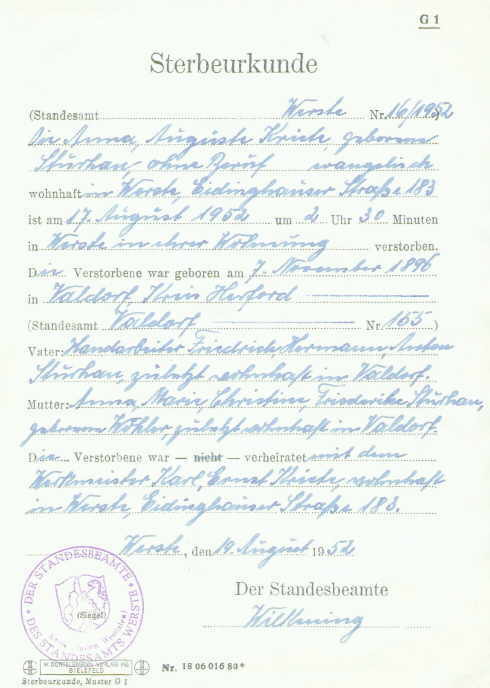 G 1
Sterbeurkunde
(Standesamt Werste Nr. 16/1952)
Die Anna, Auguste Kriete, geborene
Sturhan, ohne Beruf evangelisch
wohnhaft in Werste, Eidinghauser Straße 183
ist am 17. August 1952 um 2 Uhr 30 Minuten
in Werste in ihrer Wohnung verstorben.
Die Verstorbene war geboren am 7. November 1896
in Valdorf, Kreis Herford
(Standesamt Valdorf Nr. 155)
Vater: Handarbeiter Friedrich, Hermann, Anton
Sturhan, zuletzt wohnhaft in Valdorf.
Mutter: Anna, Marie, Christine, Friederike Sturhan,
geborene Wöhler, zuletzt wohnhaft in Valdorf.
Die Verstorbene war — nicht — verheiratet mit dem
Werkmeister Karl, Ernst Kriete, wohnhaft
in Werste, Eidinghauser Straße 183.
Werste, den 19. August 1952
Der Standesbeamte
Wilkening
DER STANDESBEAMTE
DES STANDESAMTS WERSTE
(Siegel)
BIELEFELD
Nr. 18 06 016 80*
Sterbeurkunde, Muster G 1